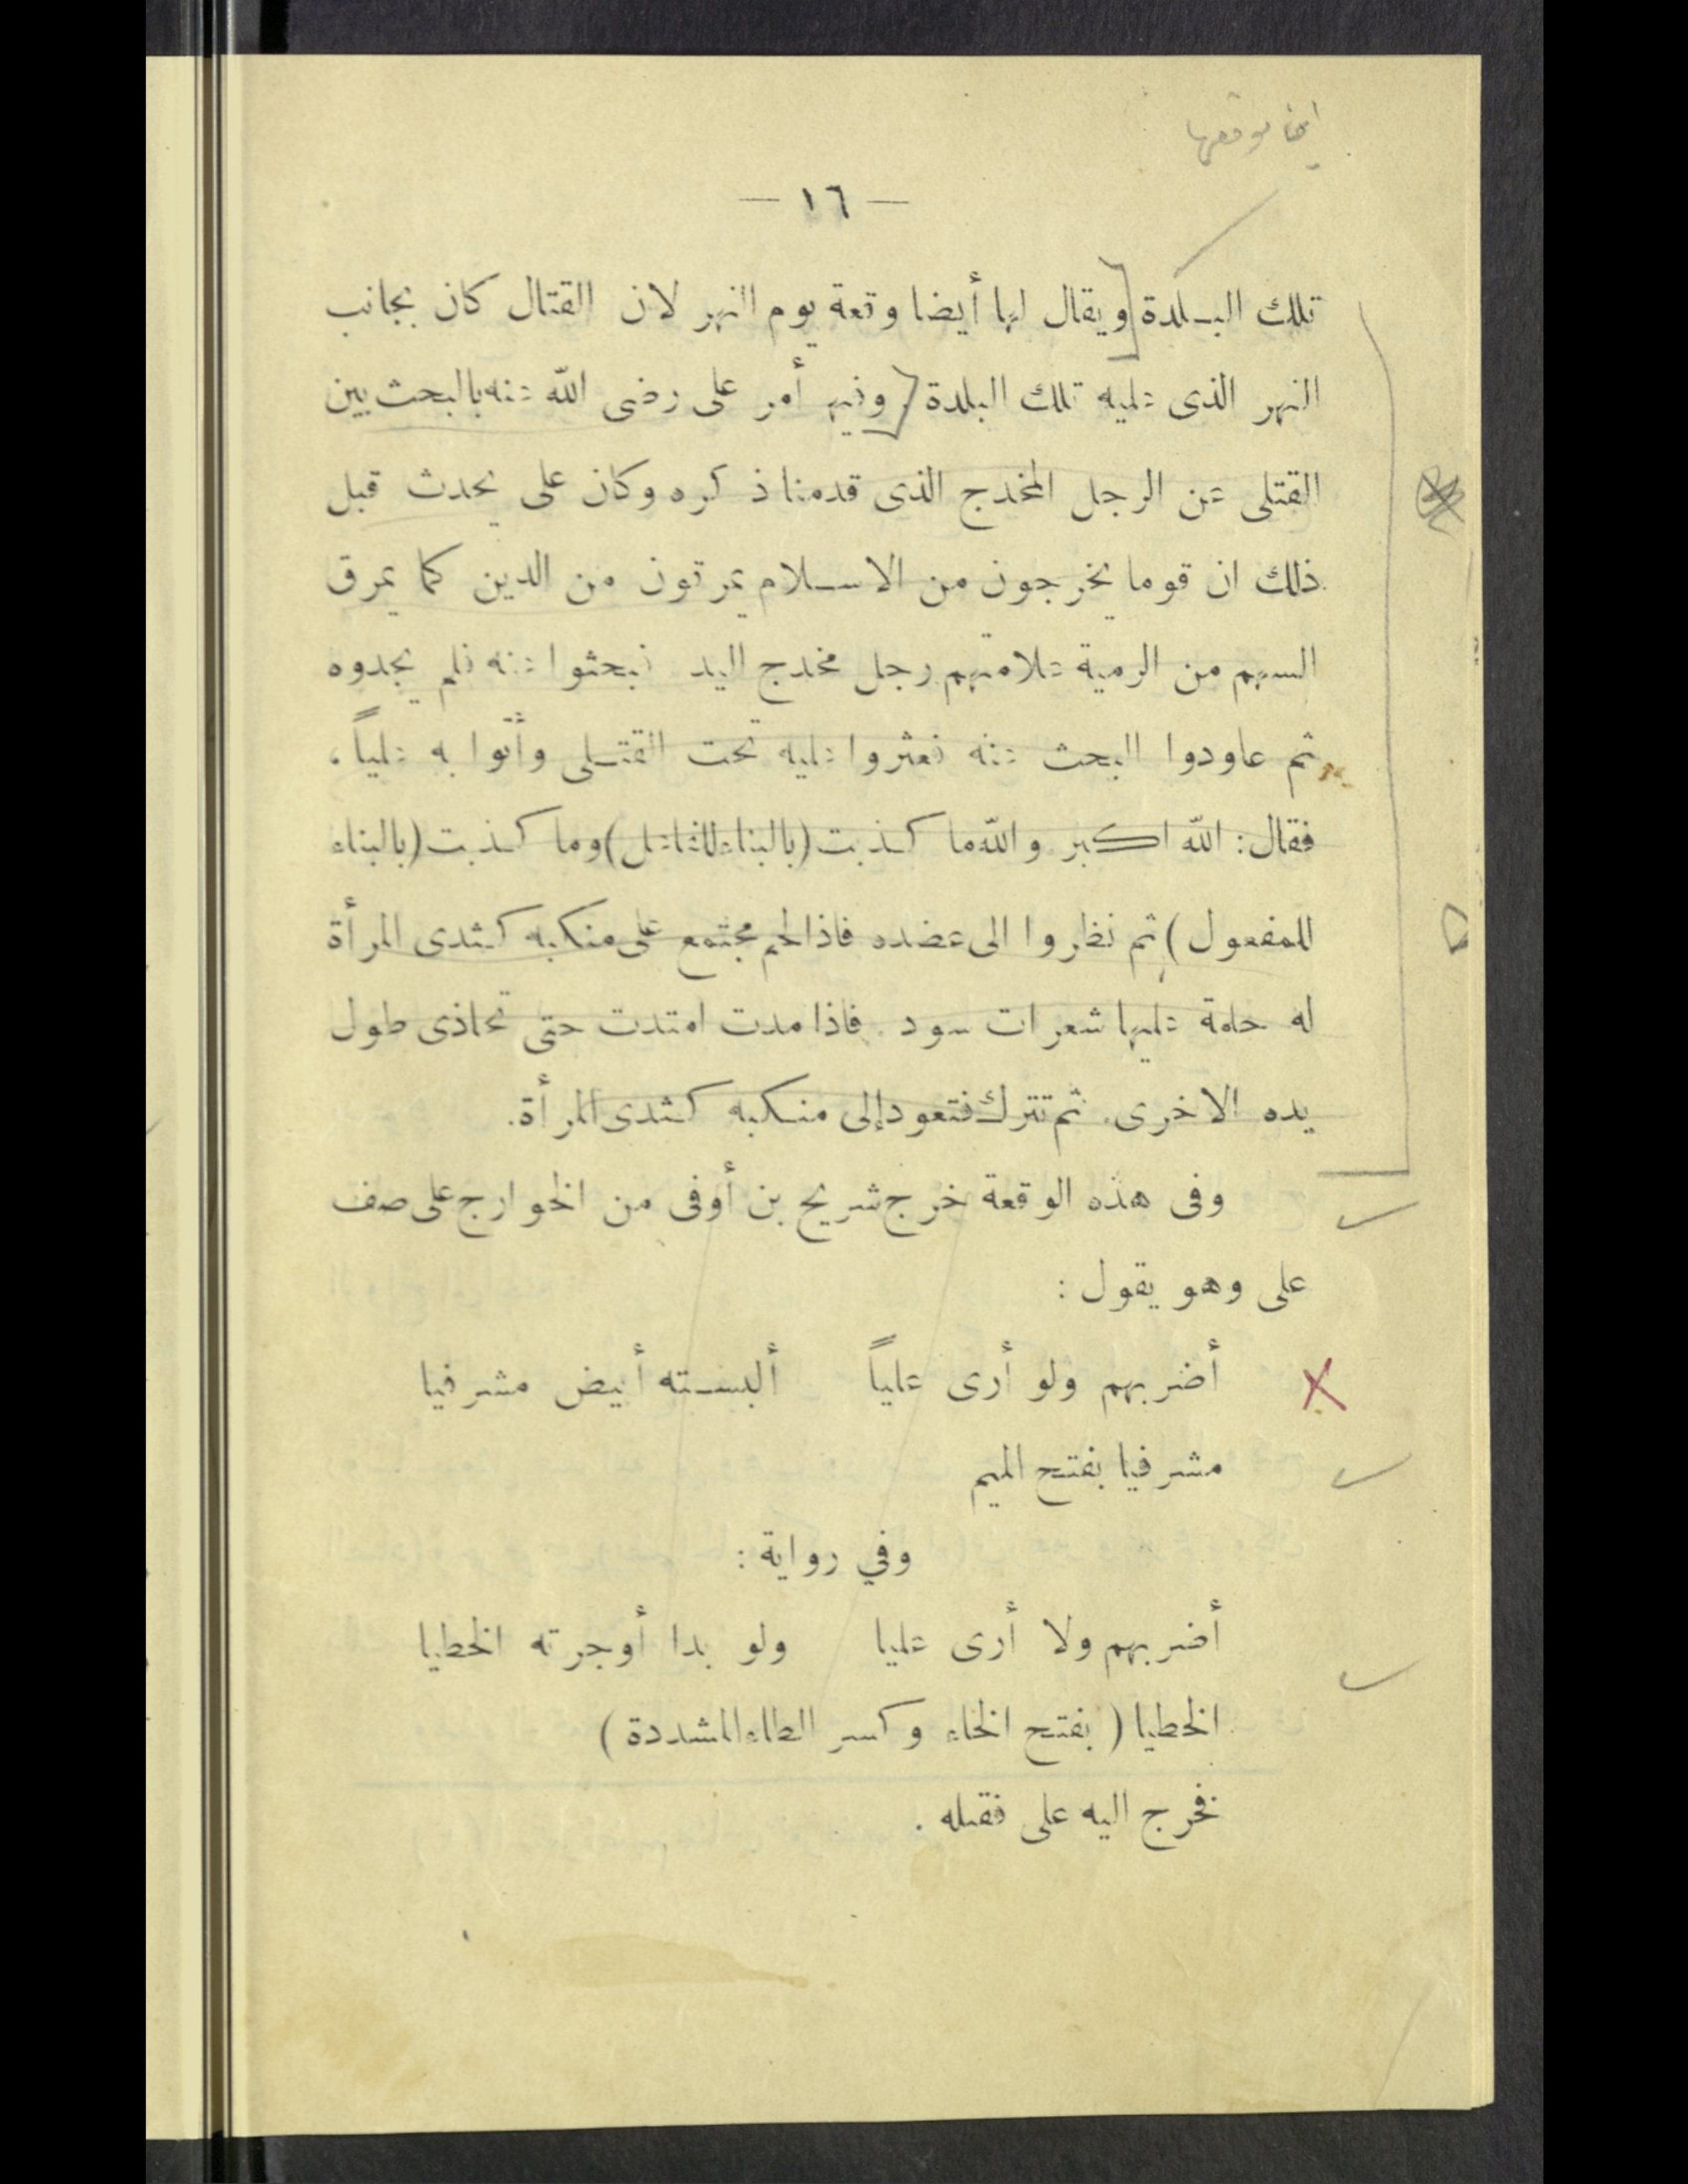 — ١٦ —
تلك البلدة ويقال لها أيضا وقعة يوم النهر لان القتال كان بجانب
النهر الذى عليه تلك البلدة . وفيها أمر على رضى الله عنه بالبحث بين
القتلى عن الرجل المخدج الذى قدمنا ذكره وكان على يحدث قبل
ذلك ان قوما يخرجون من الاسلام يمرقون من الدين كما يمرق
السهم من الرمية علامتهم رجل مخدج اليد فبحثوا عنه فلم يجدوه
ثم عاودوا البحث عنه فعثروا عليه تحت القتلى وأتوا به علياً ،
فقال : الله اكبر والله ما كذبت (بالبناء للفاعل) وما كذبت (بالبناء
للمفعول) ثم نظروا الى عضده فاذا لحم مجتمع على منكبه كثدى المرأة
له حلمة عليها شعرات سود . فاذا مدت امتدت حتى تحاذى طول
يده الاخرى . ثم تترك فتعود إلى منكبه كثدى المرأة .
وفى هذه الوقعة خرج شريح بن أوفى من الخوارج على صف
على وهو يقول :
أضربهم ولو أرى علياً ألبسته أبيض مشرفيا
مشرفيا بفتح الميم
وفي رواية :
أضربهم ولا أرى عليا ولو بدا أوجرته الخطيا
الخطيا ( بفتح الخاء وكسر الطاء المشددة )
فخرج اليه على فقتله .